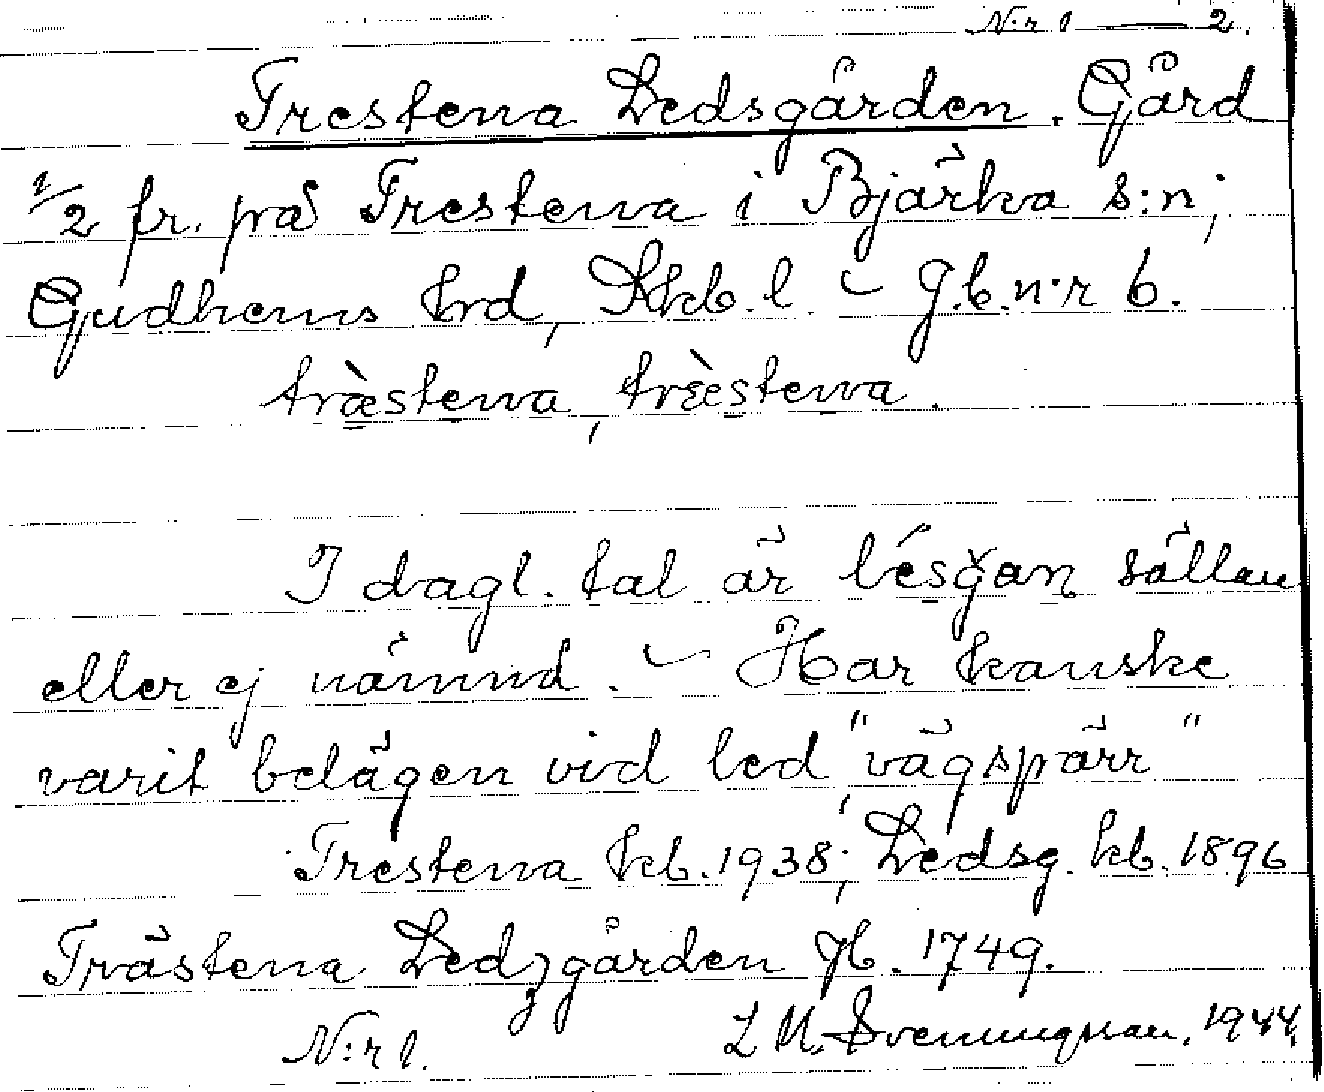 N:r 1 — 2.
Trestena Ledsgården. Gård
1/2 fr. på Trestena i Bjärka s:n;
Gudhems hrd, Skb. l – J.b. n:r 6.
træ̀stena, træ̀stena.
I dagl. tal är lésǧan sällan
eller ej nämnd. – Har kanske
varit belägen vid led "vägspärr"
Trestena kb. 1938; Ledsg. kb. 1896
Trästena Ledzgården Jb. 1749.
N:r 1. L M. Svenungsson, 1944.